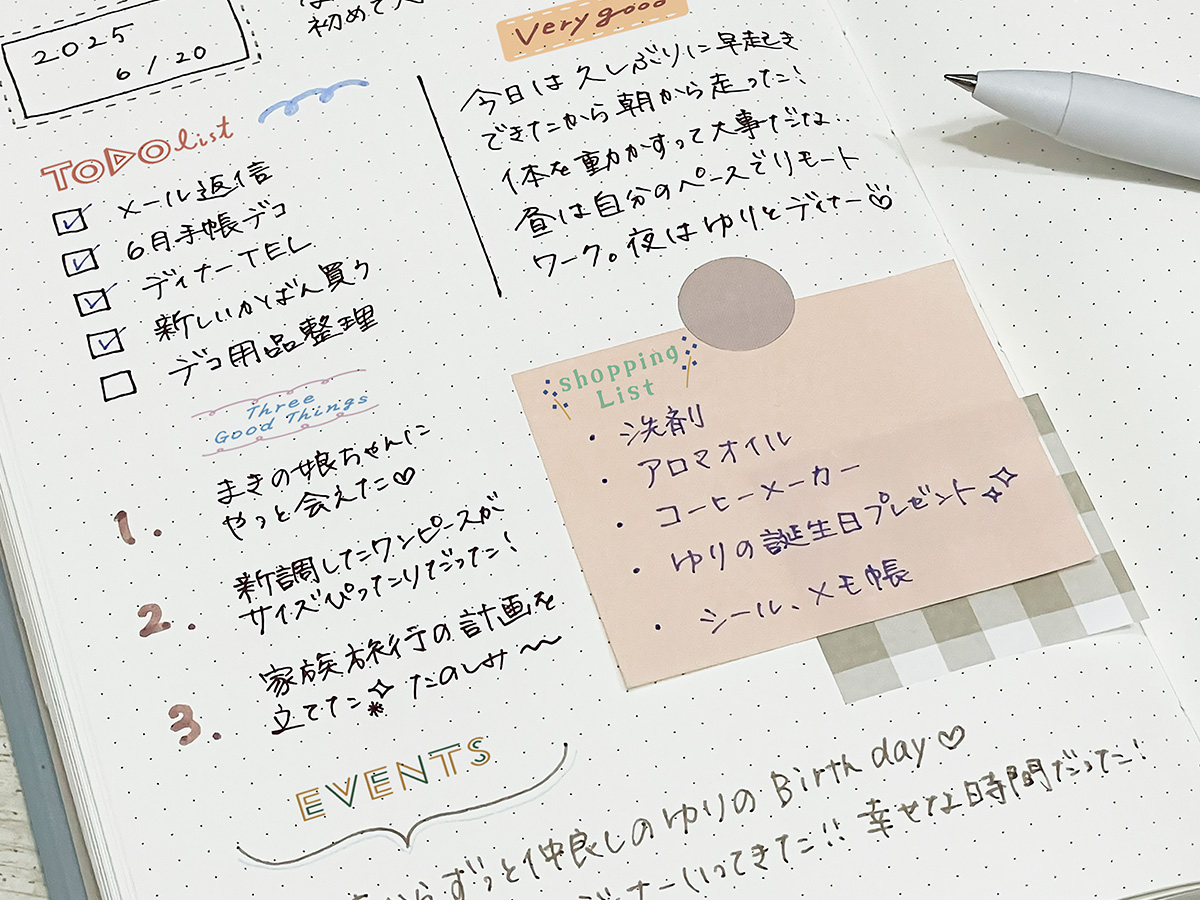 2025
6/20
初めて
TODO list
メール返信
6月手帳デコ
ディナーTEL
新しいかばん買う
デコ用品整理
Three
Good Things
1. まきの娘ちゃんに
やっと会えた♡
2. 新調したワンピースが
サイズぴったりだった!
3. 家族旅行の計画を
立てた たのしみ〜
Very good
今日は久しぶりに早起き
できたから朝から走った!
体を動かすって大事だな..
昼は自分のペースでリモート
ワーク。夜はゆりとディナー♡
shopping
List
・洗剤
・アロマオイル
・コーヒーメーカー
・ゆりの誕生日プレゼント
・シール、メモ帳
EVENTS
からずっと仲良しのゆりのBirthday♡
ディナーいってきた!! 幸せな時間だった!